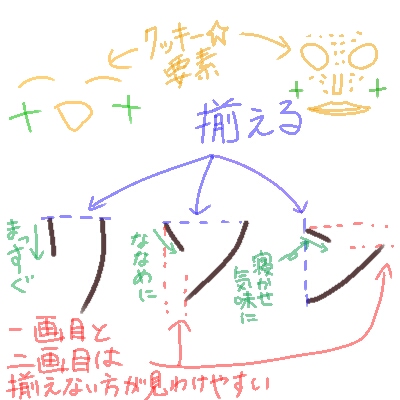 クッキー☆
要素
揃える
まっすぐ
リ
ななめに
ソ
寝かせ
気味に
ン
一画目と
二画目は
揃えない方が見わけやすい